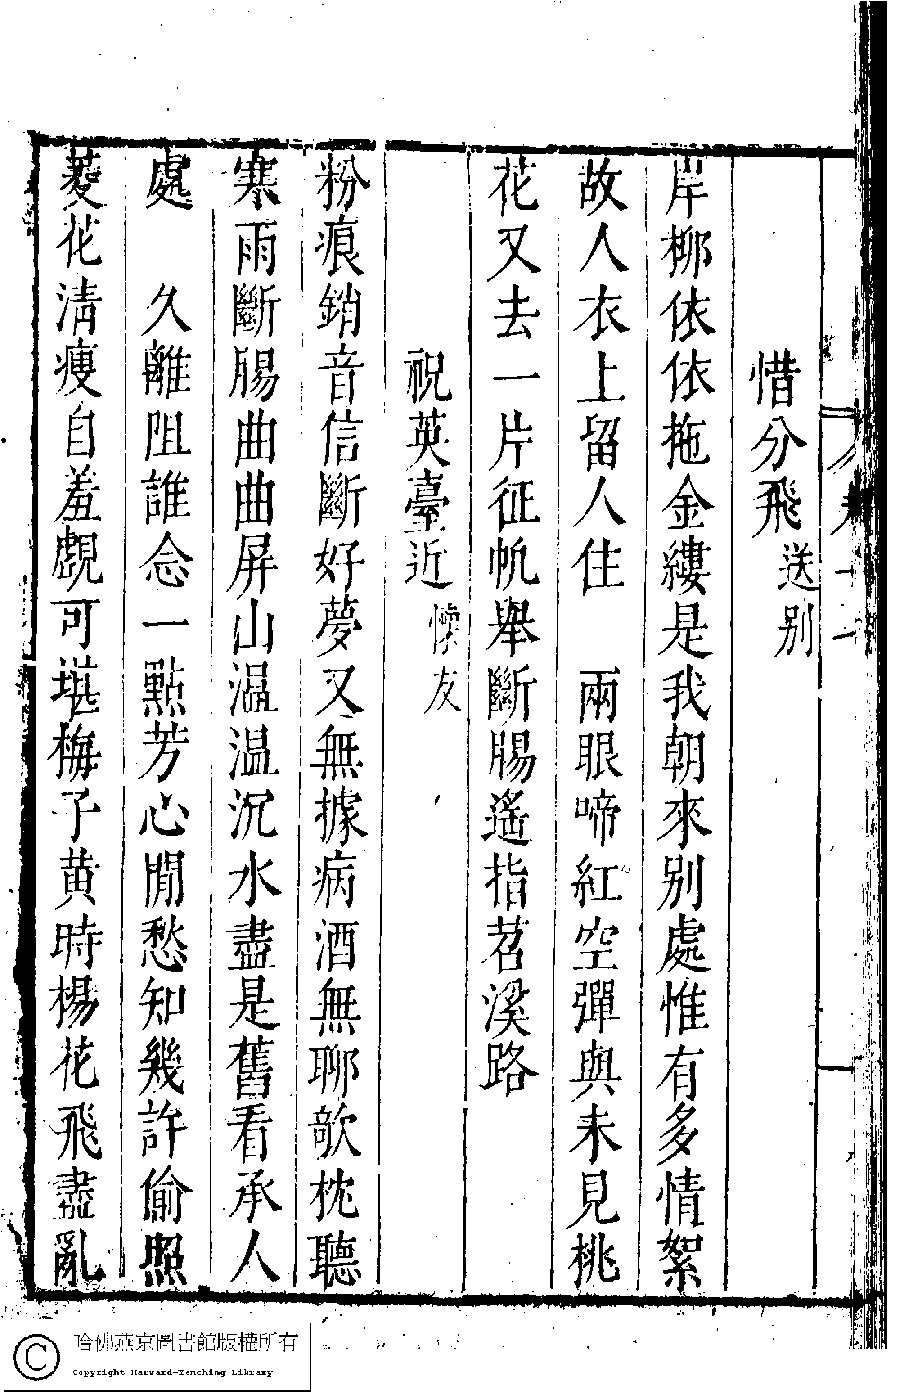 惜分飛 送别
岸柳依依拖金縷是我朝來别處惟有多情絮
故人衣上留人住　兩眼啼紅空彈與未見桃
花又去一片征帆舉斷腸遙指苕溪路
祝英臺近 懷友
粉痕銷音信斷好夢又無據病酒無聊欹枕聽
寒雨斷腸曲曲屏山温温沉水盡是舊看承人
處　久離阻誰念一點芳心閒愁知幾許偷照
菱花清瘦自羞覷可堪梅子黄時楊花飛盡亂
哈佛燕京圖書館版權所有
Copyright Harvard-Yenching Library